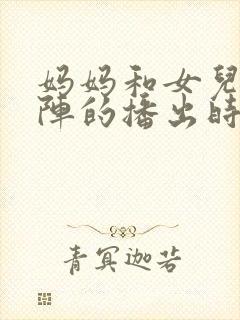 妈妈和女兒
陣的播出時
青冥迦若